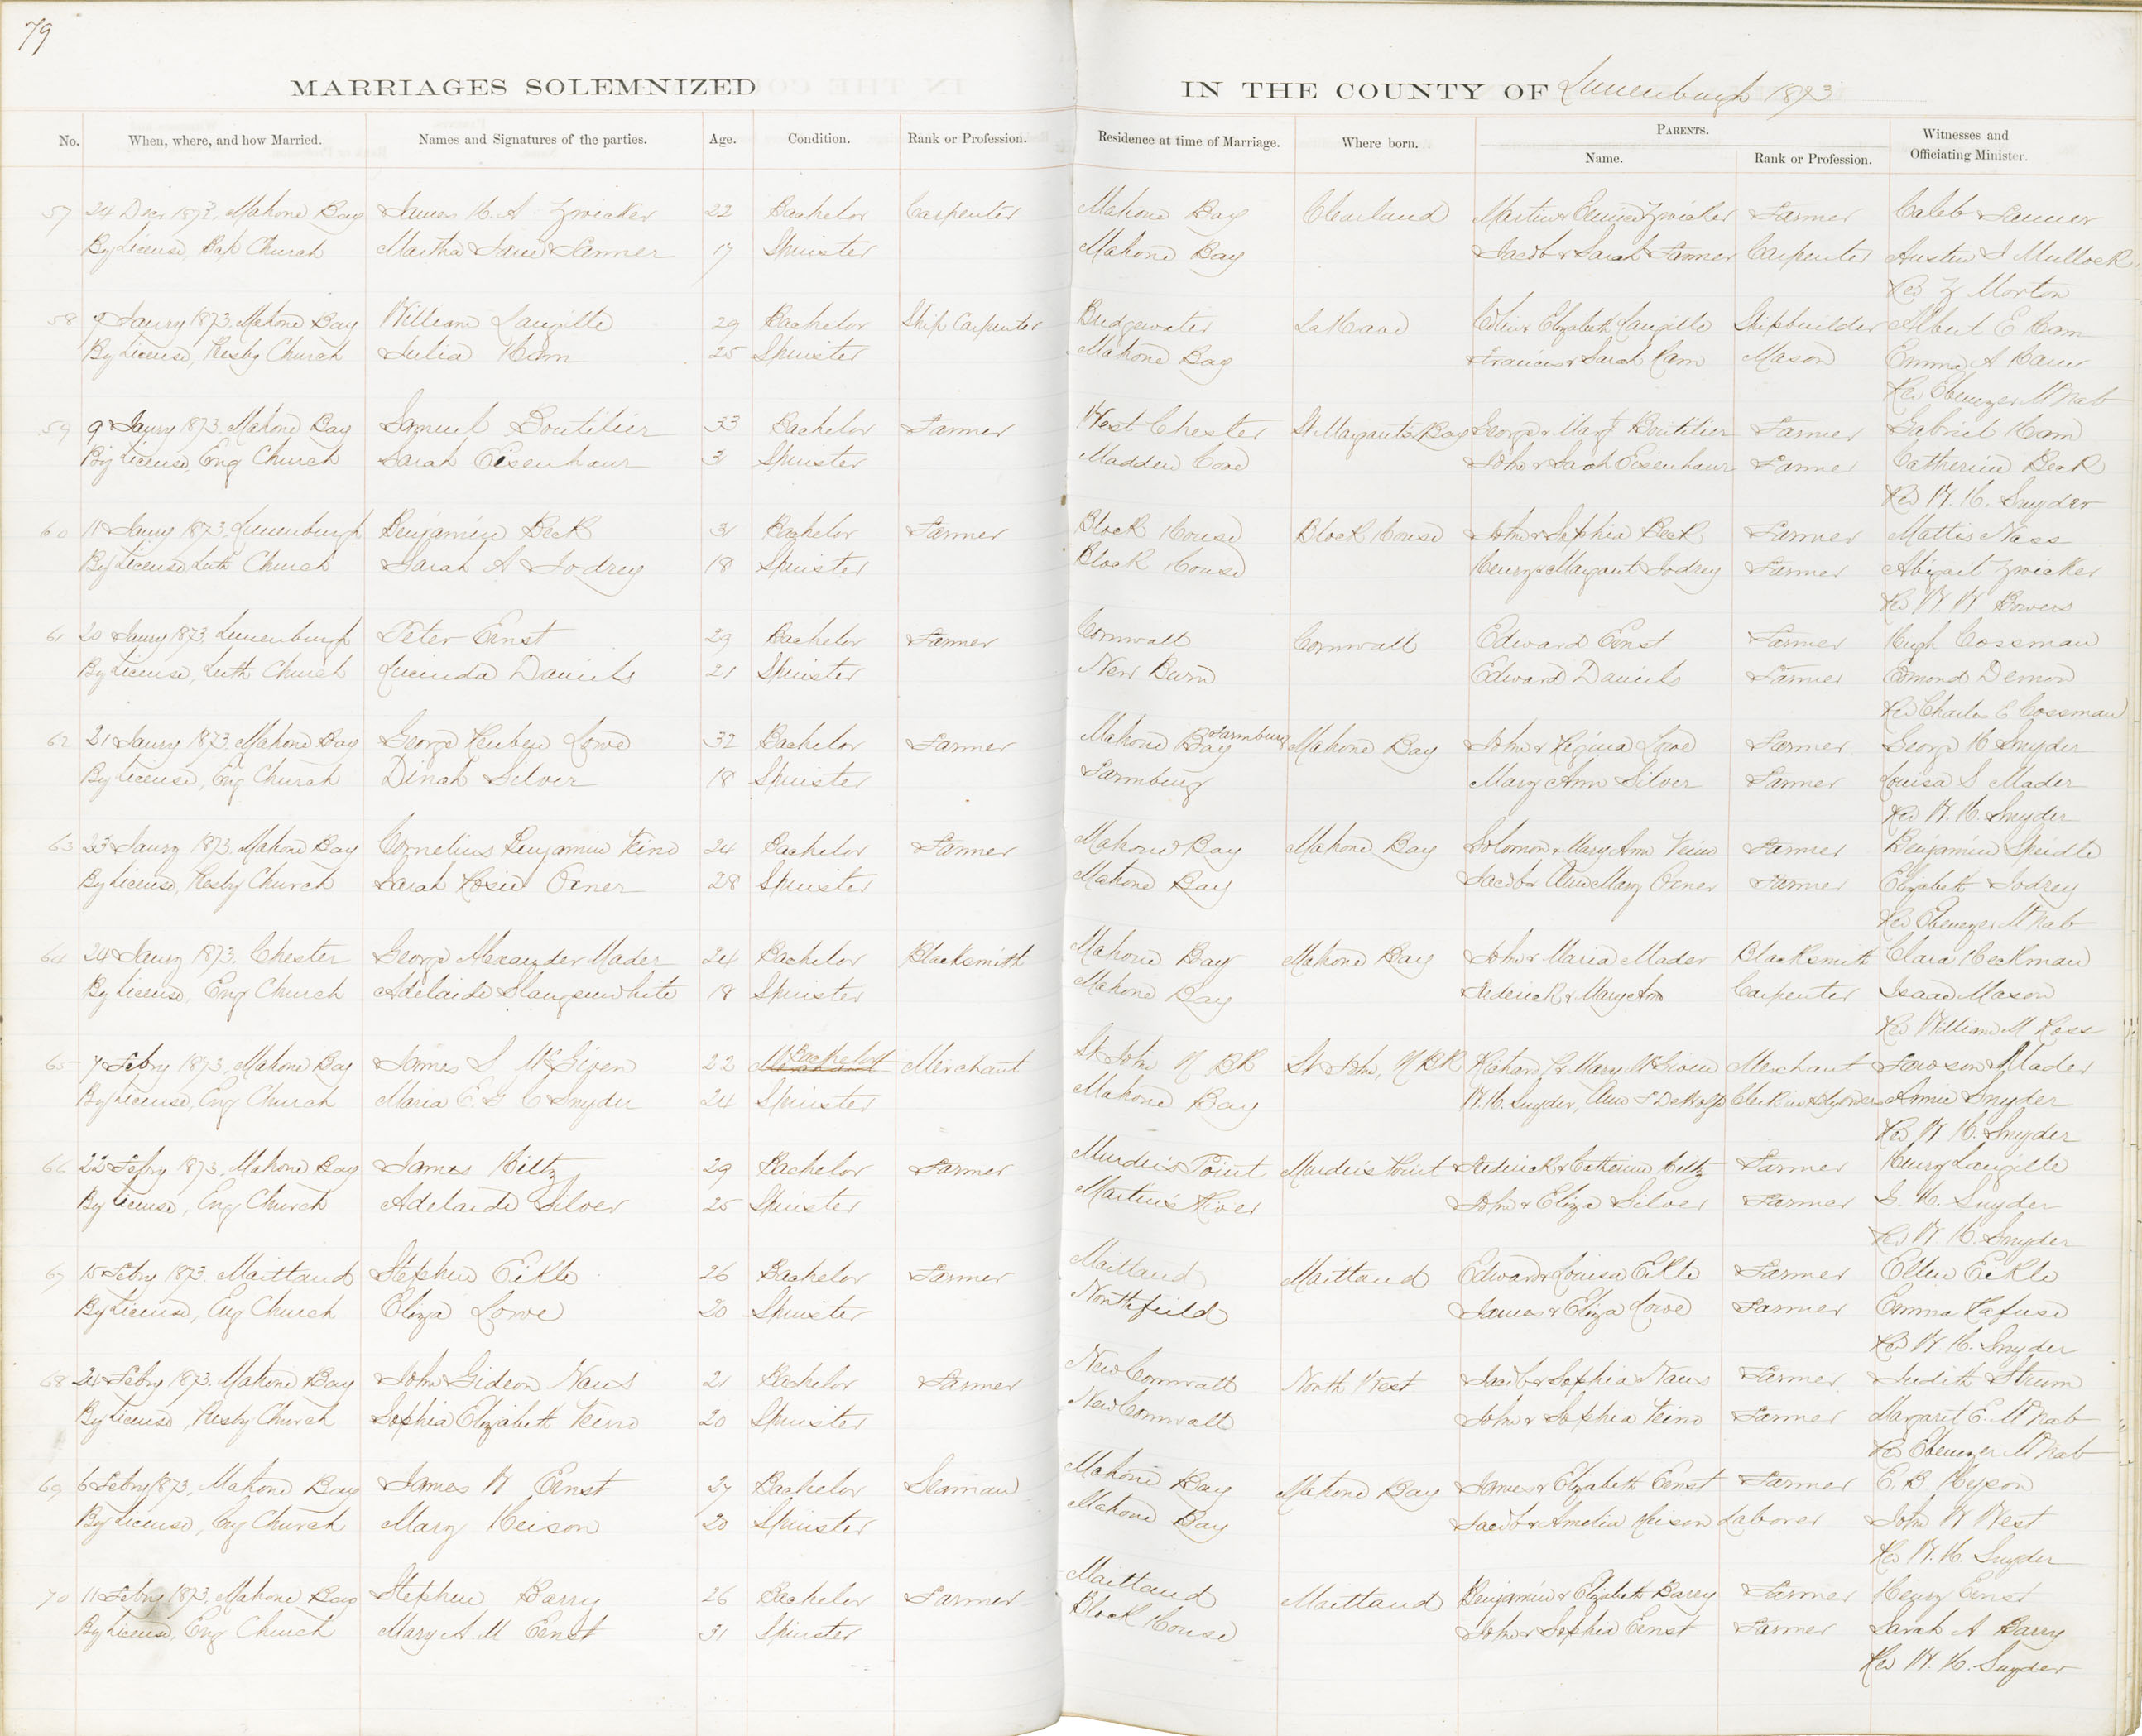 79
MARRIAGES SOLEMNIZED IN THE COUNTY OF Lunenburgh 1873
No. When, where, and how Married. Names and Signatures of the parties. Age. Condition. Rank or Profession. Residence at time of Marriage. Where born. PARENTS. Name. Rank or Profession. Witnesses and Officiating Minister.
57 24 Decr 1872, Mahone Bay James H. A Zwicker 22 Bachelor Carpenter Mahone Bay Clearland Martin & Zwicker Farmer Caleb Lanner
By License, Bap Church Martha Jane Lanner 17 Spinster Mahone Bay Jacob & Sarah Carpenter Austin I Mullock
Rev Z Morton
58 9 Jaury 1873. Mahone Bay William Langille 29 Bachelor Ship Carpenter Bridgewater LaHave & Elizabeth Langille Shipbuilder Albert E Ham
By License, Presby Church Julia Ham 25 Spinster Mahone Bay Francis & Sarah Ham Mason Emma A Ham
Rev Ebenezer McNab
59 9 Jaury 1873. Mahone Bay Samuel Boutilier 33 Bachelor Farmer West Chester St Margarets Bay George & Margt Boutilier Farmer Gabriel Ham
By License, Eng Church Sarah Eisenhaur 31 Spinster Madden Cove John & Sarah Eisenhaur Farmer Catherine Beck
Rev W. H. Snyder
60 11 Jaury 1873. Lunenburgh Benjamin Beck 31 Bachelor Farmer Block House Block House John & Sophia Beck Farmer Mattis Nass
By License Luth Church Sarah A Jodrey 18 Spinster Block House Henry & Margaret Jodrey Farmer Abigail Zwicker
Rev W. W. Bowers
61 20 Jaury 1873. Lunenburgh Peter Ernst 29 Bachelor Farmer Cornwall Cornwall Edward Ernst Farmer Hugh Cossman
By License, Luth Church Lucinda Daniels 21 Spinster New Burn Edward Daniels Farmer Edmond Demon
Rev Charles E Cossman
62 21 Jaury 1873. Mahone Bay George Reuben Lowe 32 Bachelor Farmer Mahone Bay Farmburg Mahone Bay John & Regina Lowe Farmer George H Snyder
By License, Eng Church Dinah Silver 18 Spinster Farmburg Mary Ann Silver Farmer Louisa S Mader
Rev W. H. Snyder
63 23 Jaury 1873. Mahone Bay Cornelius Benjamin Veino 24 Bachelor Farmer Mahone Bay Mahone Bay Solomon & Mary Ann Veino Farmer Benjamin Speidle
By License, Presby Church Sarah Rosie Oxner 28 Spinster Mahone Bay Jacob & Ann Mary Oxner Farmer Elizabeth Jodrey
Rev Ebenezer McNab
64 24 Jaury 1873. Chester George Alexander Mader 24 Bachelor Blacksmith Mahone Bay Mahone Bay John & Maria Mader Blacksmith Clara Heckman
By License, Eng Church Adelaide Slaugenwhite 18 Spinster Mahone Bay Frederick & Mary Ann Carpenter Isaac Mason
Rev William M Ross
65 7 Febry 1873, Mahone Bay James S McGiven 22 Bachelor Merchant St John N BK St John, N BK Richard & Mary McGiven Merchant Mader
By License, Eng Church Maria E. G C Snyder 24 Spinster Mahone Bay W. H. Snyder, Ann DeWolfe Clerk in Hy Orders Annie Snyder
Rev W H. Snyder
66 22 Febry 1873. Mahone Bay James Hiltz 29 Bachelor Farmer Murder's Point Murders Point Frederick & Catherine Hiltz Farmer Henry Langille
By License, Eng Church Adelaide Silver 25 Spinster Martin's River John & Eliza Silver Farmer G. H. Snyder
Rev W. H. Snyder
67 15 Febry 1873. Maitland Stephen Eikle 26 Bachelor Farmer Maitland Maitland Edward & Louisa Eikle Farmer Ellen Eikle
By License, Eng Church Eliza Lowe 20 Spinster Northfield James & Eliza Lowe Farmer Emma Rafuse
Rev W H. Snyder
68 24 Febry 1873. Mahone Bay John Gideon Naus 21 Bachelor Farmer New Cornwall North West Jacob & Sophia Naus Farmer Judith Strum
By License, Presby Church Sophia Elizabeth Veino 20 Spinster New Cornwall John & Sophia Veino Farmer Margaret E. McNab
Rev Ebenezer McNab
69 6 Febry 1873, Mahone Bay James W Ernst 27 Bachelor Seaman Mahone Bay Mahone Bay James & Elizabeth Ernst Farmer E. B Hyson
By License, Eng Church Mary Heison 20 Spinster Mahone Bay Jacob & Amelia Heison Laborer John W West
Rev W. H. Snyder
70 11 Febry 1873. Mahone Bay Stephen Barry 26 Bachelor Farmer Maitland Maitland Benjamin & Elizabeth Barry Farmer Henry Ernst
By License, Eng Church Mary A. M Ernst 31 Spinster Block House John & Sophia Ernst Farmer Sarah A Barry
Rev W. H. Snyder